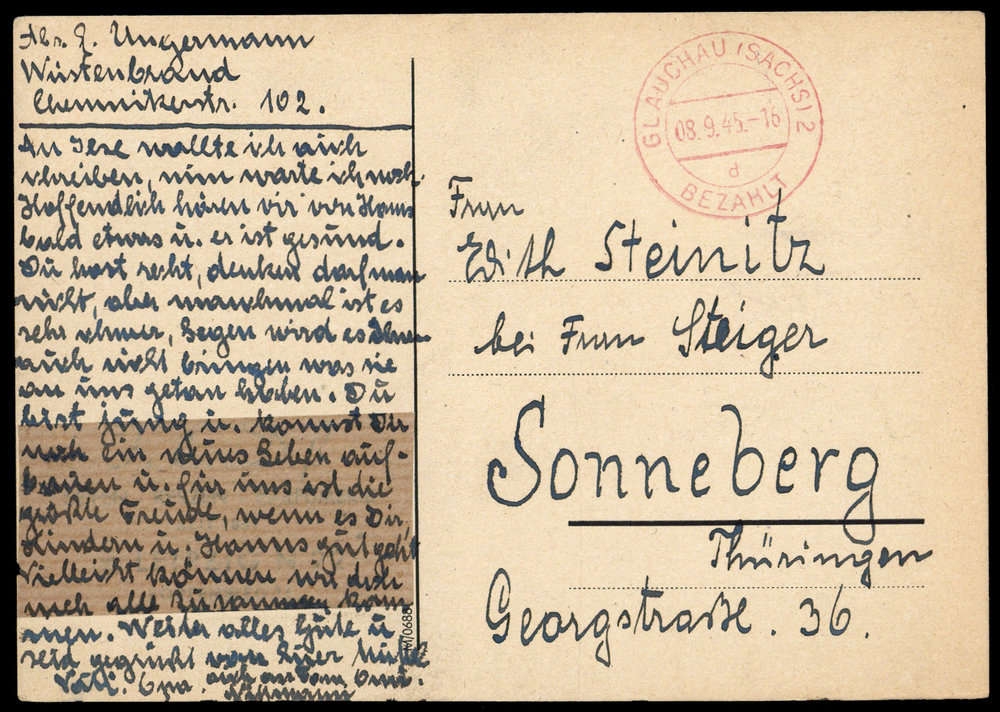 Abs. E. Ungermann
Wüstenbrand
Chemnitzerstr. 102.
An Ilse wollte ich auch
schreiben, nun warte ich noch.
Hoffendlich hören wir von Hanns
bald etwas u. er ist gesund.
Du hast recht, denken darf man
nicht, aber manchmal ist es
sehr schwer, Segen wird es Ihnen
auch nicht bringen was sie
an uns getan haben. Du
bist jung u. kannst Dir
noch ein neues Leben auf-
bauen u. für uns ist die
größte Freude, wenn es Dir,
Kindern u. Hanns gut geht
Vielleicht können wir doch
noch alle zusammen kom-
men. Weiter alles Gute u
seid gegrüßt von Euer
Vati. Opa. auch an Fam.
GLAUCHAU (SACHS) 2
08.9.45.-16
d
BEZAHLT
Frau
Edith Steinitz
bei Frau Steiger
Sonneberg
Thüringen
Georgstraße. 36.
M/0688